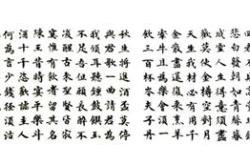 悲白發朝如青絲暮
成雪人生得意須盡
歡莫使金樽空對月
天生我材必有用千
金散盡還復來烹羊
宰牛且為樂會須一
飲三百杯岑夫子丹
丘生將進酒盃莫停
與君歌一曲請君為
我傾耳聽鐘鼓饌玉
不足貴但願長醉不
復醒古來聖賢皆寂
寞惟有飲者留其名
陳王昔時宴平樂斗
酒十千恣歡謔主人
何為言少錢徑須沽